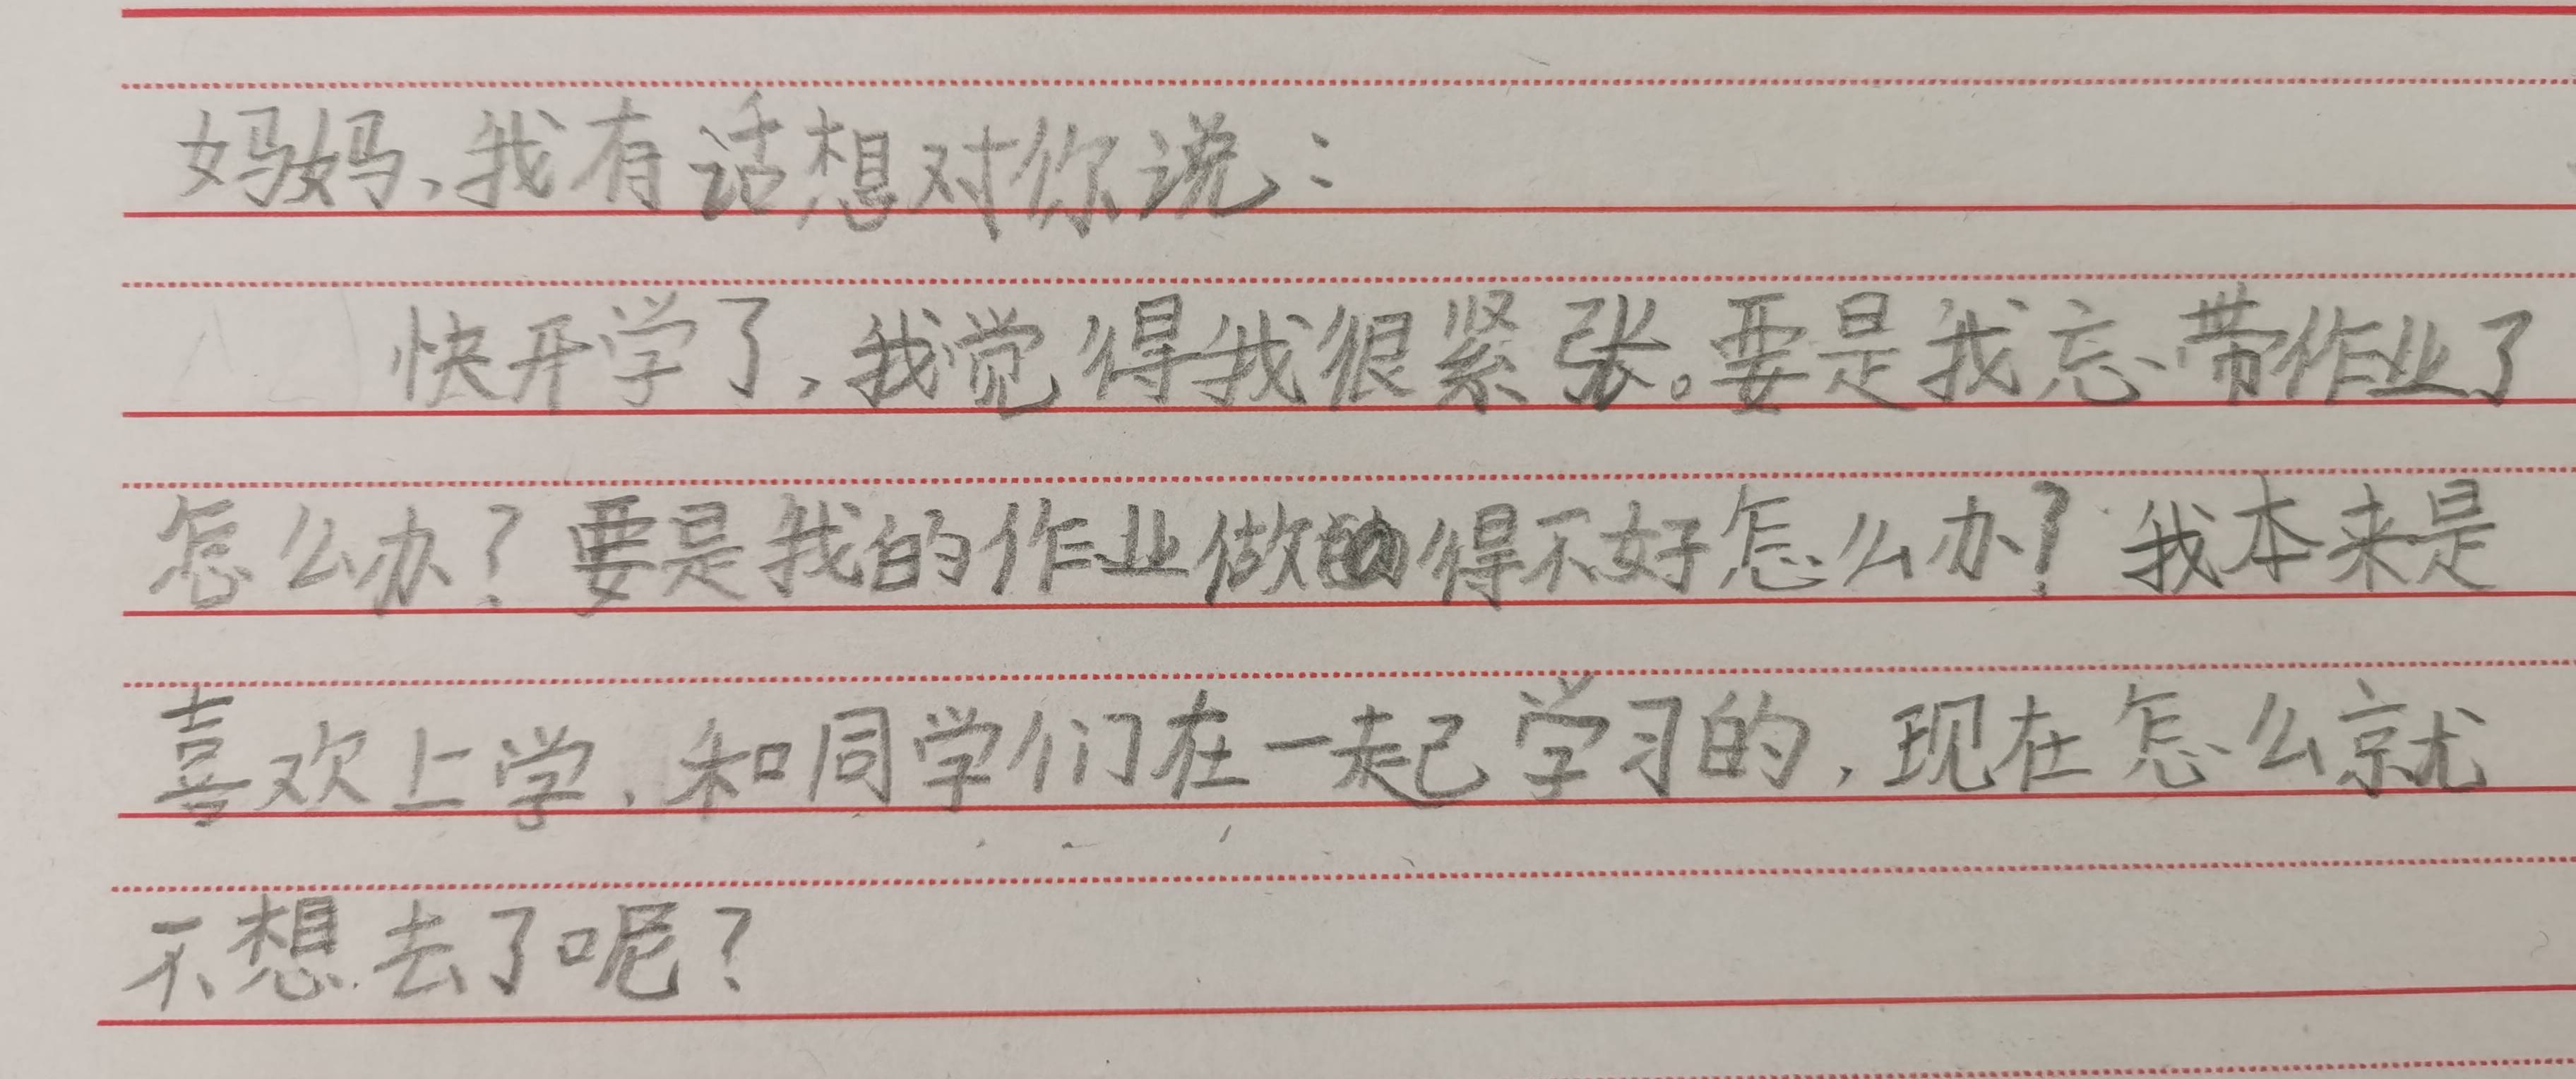 妈妈，我有话想对你说：
快开学了，我觉得我很紧张。要是我忘带作业了
怎么办？要是我的作业做得不好怎么办？我本来是
喜欢上学，和同学们在一起学习的，现在怎么就
不想去了呢？